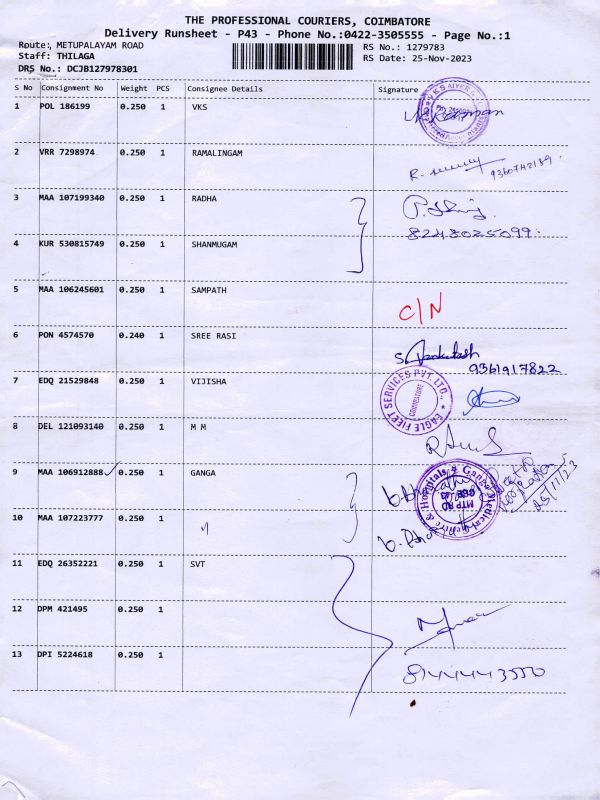 THE PROFESSIONAL COURIERS, COIMBATORE
Delivery Runsheet - P43 - Phone No.:0422-3505555 - Page No.:1
Route: METUPALAYAM ROAD
RS No.: 1279783
Staff: THILAGA
RS Date: 25-Nov-2023
DRS No.: DCJB127978301
S No Consignment No Weight PCS Consignee Details Signature
1 POL 186199 0.250 1 VKS
2 VRR 7298974 0.250 1 RAMALINGAM
3 MAA 107199340 0.250 1 RADHA
8248025099
4 KUR 530815749 0.250 1 SHANMUGAM
5 MAA 106245601 0.250 1 SAMPATH
C/N
6 PON 4574570 0.240 1 SREE RASI
S. Venkatesh
9361917822
7 EDQ 21529848 0.250 1 VIJISHA
EAGLE FLEET SERVICES PVT. LTD.,
COIMBATORE
8 DEL 121093140 0.250 1 M M
9 MAA 106912888 0.250 1 GANGA
25/11/23
MTP RD
CBE-43
10 MAA 107223777 0.250 1 "
11 EDQ 26352221 0.250 1 SVT
12 DPM 421495 0.250 1
13 DPI 5224618 0.250 1